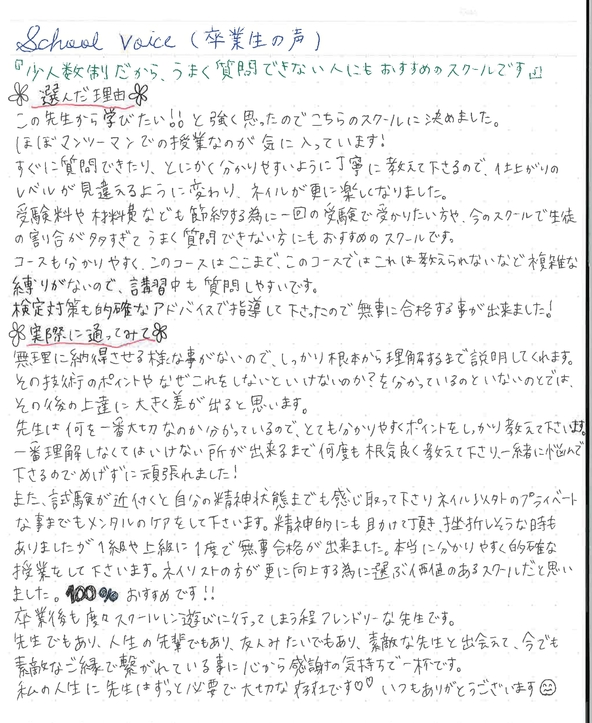 School Voice (卒業生の声)
『少人数制だから、うまく質問できない人にもおすすめのスクールです』
選んだ理由
この先生から学びたい!!と強く思ったのでこちらのスクールに決めました。
ほぼマンツーマンでの授業なのが気に入っています!
すぐに質問できたり、とにかく分かりやすいように丁寧に教えて下さるので、仕上がりの
レベルが見違えるように変わり、ネイルが更に楽しくなりました。
受験料や材料費なども節約する為に一回の受験で受かりたい方や、今のスクールで生徒
の割合が多すぎてうまく質問できない方にもおすすめのスクールです。
コースも分かりやすく、このコースはここまで、このコースではこれは教えられないなど複雑な
縛りがないので、講習中も質問しやすいです。
検定対策も的確なアドバイスで指導して下さったので無事に合格する事が出来ました!
実際に通ってみて
無理に納得させる様な事がないので、しっかり根本から理解するまで説明してくれます。
その技術のポイントやなぜこれをしないといけないのか?を分かっているのといないのとでは、
その後の上達に大きく差が出ると思います。
先生は何を一番大切なのか分かっているので、とても分かりやすくポイントをしっかり教えて下さいます。
一番理解しなくてはいけない所が出来るまで何度も根気良く教えて下さり、一緒に悩んで
下さるのでめげずに頑張れました!
また、試験が近付くと自分の精神状態までも感じ取って下さりネイル以外のプライベート
な事までもメンタルのケアをして下さいます。精神的にも助けて頂き、挫折しそうな時も
ありましたが1級や上級に1度で無事合格が出来ました。本当に分かりやすく的確な
授業をして下さいます。ネイリストの方が更に向上する為に選ぶ価値のあるスクールだと思い
ました。100%おすすめです!!
卒業後も度々スクールに遊びに行ってしまう程フレンドリーな先生です。
先生でもあり、人生の先輩でもあり、友人みたいでもあり、素敵な先生と出会えて、今でも
素敵なご縁で繋がれている事に心から感謝の気持ちで一杯です。
私の人生に先生はずっと必要で大切な存在です♡♡ いつもありがとうございます☺